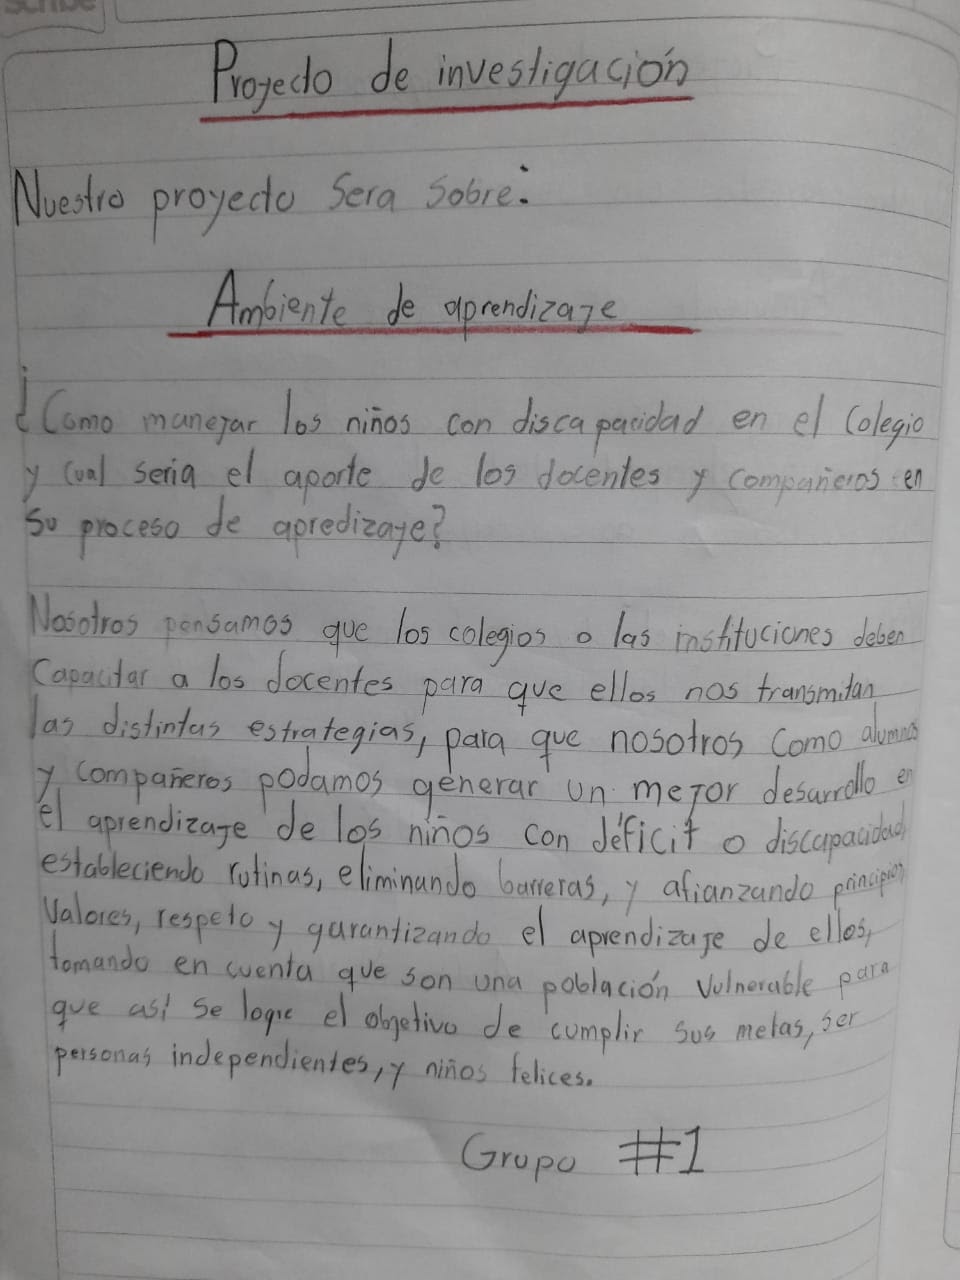 Scribe
Proyecto de investigación
Nuestro proyecto Sera Sobre:
Ambiente de aprendizaje
¿Como manejar los niños con discapacidad en el Colegio
y cual seria el aporte de los docentes y compañeros en
su proceso de apredizaje?
Nosotros pensamos que los colegios o las instituciones deben
Capacitar a los docentes para que ellos nos transmitan
las distintas estrategias, para que nosotros como alumnos
y compañeros podamos generar un mejor desarrollo en
el aprendizaje de los niños con déficit o discapacidad,
estableciendo rutinas, eliminando barreras, y afianzando principios
Valores, respeto y garantizando el aprendizaje de ellos,
tomando en cuenta que son una población vulnerable para
que así se logre el objetivo de cumplir sus metas, ser
personas independientes, y niños felices.
Grupo #1